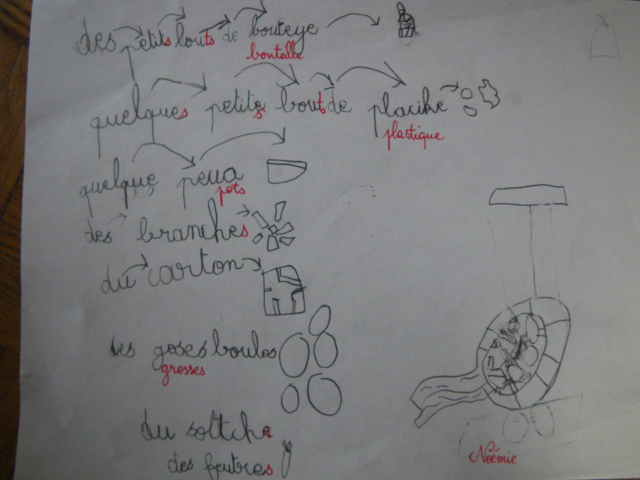 des petits bouts de bouteye
bouteille
quelques petits bouts de placike
plastique
quelque peua
pots
des branches
du carton
des goses boulos
grosses
du soltche
des feutres
Noémie